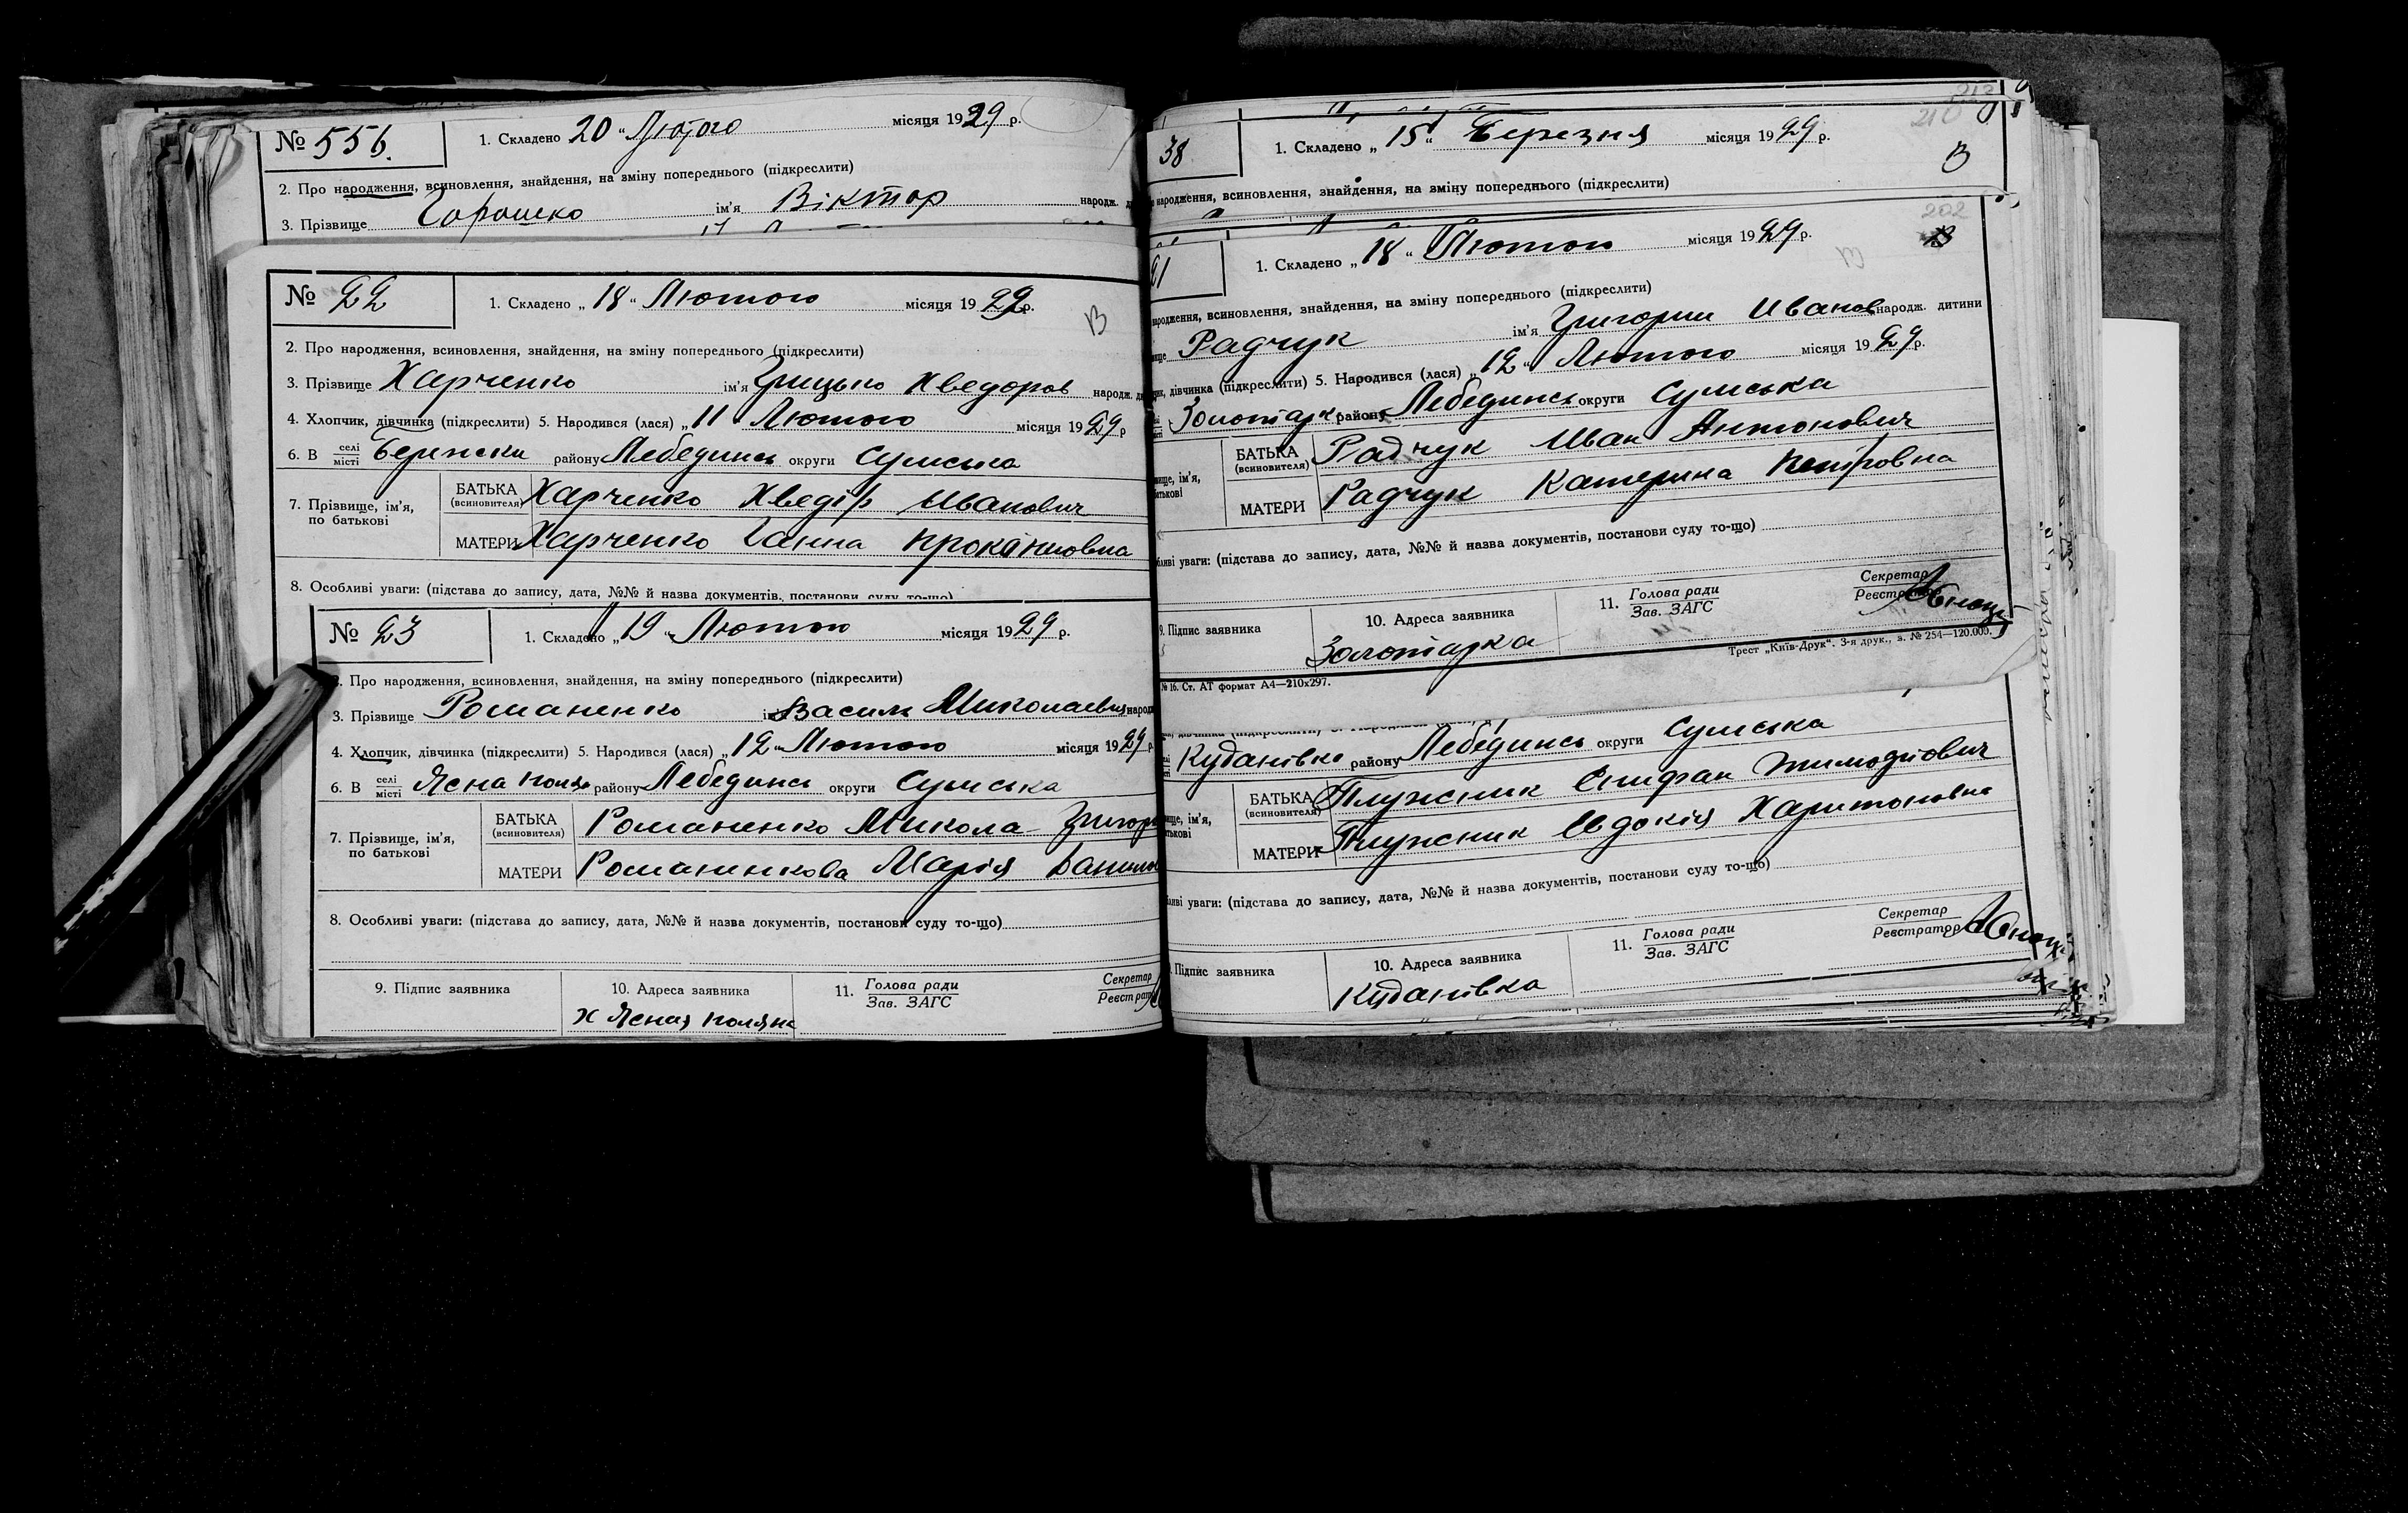 № 556.
1. Складено 20 "Лютого місяця 1929 р.
2. Про народження, всиновлення, знайдення, на зміну попереднього (підкреслити)
3. Прізвище Горошко ім'я Віктор народж.
№ 22
1. Складено „18" Лютого місяця 1929 р.
В
2. Про народження, всиновлення, знайдення, на зміну попереднього (підкреслити)
3. Прізвище Харченко ім'я Грицько Хведоров народж.
4. Хлопчик, дівчинка (підкреслити) 5. Народився (лася) „11" Лютого місяця 1929 р
6. В селі місті району Лебединсь округи Сумська
7. Прізвище, ім'я, по батькові
БАТЬКА (всиновителя) Харченко Хведір Иванович
МАТЕРИ Харченко Ганна
8. Особливі уваги: (підстава до запису, дата, №№ й назва документів, постанови суду то-що)
№ 23
1. Складено „19" Лютого місяця 1929 р.
Про народження, всиновлення, знайдення, на зміну попереднього (підкреслити)
3. Прізвище Романенко Василь Миколаевич
4. Хлопчик, дівчинка (підкреслити) 5. Народився (лася) „12" Лютого місяця 1929 р.
6. В селі місті Ясна поля району Лебединсь округи Сумська
7. Прізвище, ім'я, по батькові
БАТЬКА (всиновителя) Романенко Микола Григор
МАТЕРИ Романенкова Марія Данилов
8. Особливі уваги: (підстава до запису, дата, №№ й назва документів, постанови суду то-що)
9. Підпис заявника
10. Адреса заявника
х Ясная поляна
11. Голова ради Зав. ЗАГС
Секретар
38
1. Складено „15" Березня місяця 1929 р.
210
В
народження, всиновлення, знайдення, на зміну попереднього (підкреслити)
202
21
1. Складено „18" Лютого місяця 1929 р.
народження, всиновлення, знайдення, на зміну попереднього (підкреслити)
Радчук ім'я Григории Иванов народж. дитини
дівчинка (підкреслити) 5. Народився (лася) „12" Лютого місяця 1929 р.
Золотарк району Лебединсь округи Сумська
БАТЬКА (всиновителя) Радчук Иван Антонович
МАТЕРИ Радчук Катерина Петровна
уваги: (підстава до запису, дата, №№ й назва документів, постанови суду то-що)
9. Підпис заявника
10. Адреса заявника
Золотарка
11. Голова ради Зав. ЗАГС
Секретар Реєстратор
Трест „Київ-Друк". 3-я друк., з. № 254—120.000.
№ 16. Ст. АТ формат А4—210х297.
Куданівка району Лебединсь округи Сумська
БАТЬКА (всиновителя) Плужник Епифан Тимофіович
МАТЕРИ Плужник Євдокія Харитоновна
уваги: (підстава до запису, дата, №№ й назва документів, постанови суду то-що)
Підпис заявника
10. Адреса заявника
Куданівка
11. Голова ради Зав. ЗАГС
Секретар Реєстратор